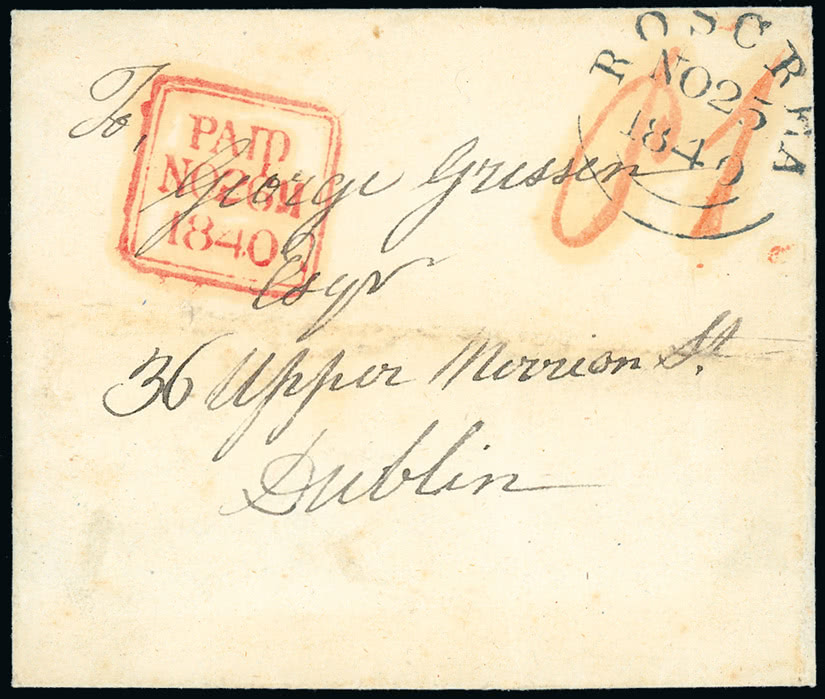 ROSCREA
NO 25
1840
P1
PAID
1840
To,
George
Esqr
36 Upper Merrion St.
Dublin